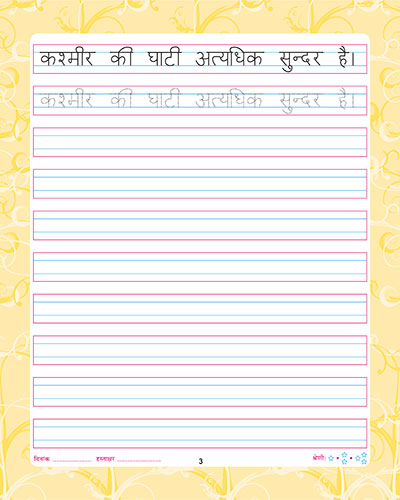 कश्मीर की घाटी अत्यधिक सुन्दर है।
कश्मीर की घाटी अत्यधिक सुन्दर है।
दिनांक ..................... हस्ताक्षर ........................ 3 श्रेणी: